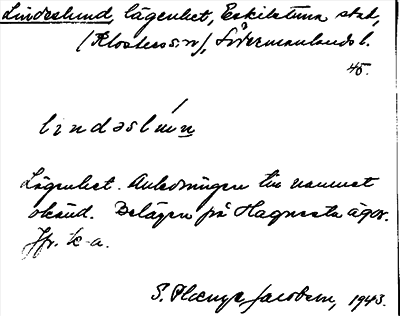 Lindeslund, lägenhet, Eskilstuna stad,
(Klosters sn), Södermanlands l.
45.
lindəslún
Lägenhet. Anledningen till namnet
okänd. Belägen på Hagnesta ägor.
Jfr. k-a.
S. Plænge Jacobson, 1943.